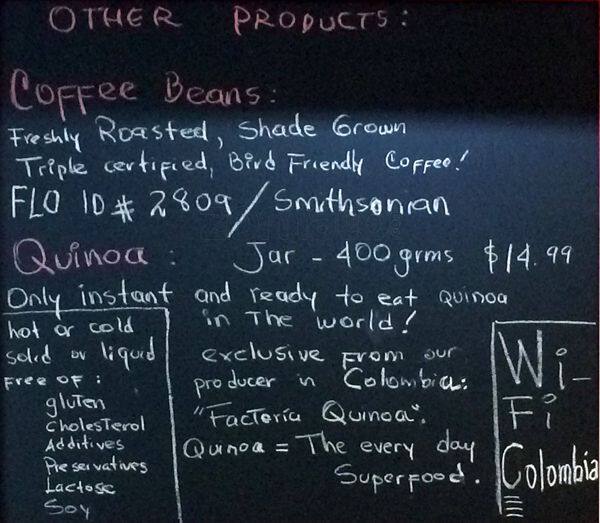 OTHER PRODUCTS:
Coffee Beans:
Freshly Roasted, Shade Grown
Triple certified, Bird Friendly Coffee!
FLO ID # 2809 / Smithsonian
Quinoa: Jar - 400 grms $14.99
Only instant and ready to eat QUINOA
in The world!
hot or cold
solid or liquid
FREE OF:
gluten
cholesterol
Additives
Preservatives
Lactose
Soy
exclusive From our
producer in Colombia:
"Factoría Quinoa".
Quinoa = The every day
Superfood.
Wi-
Fi
Colombia